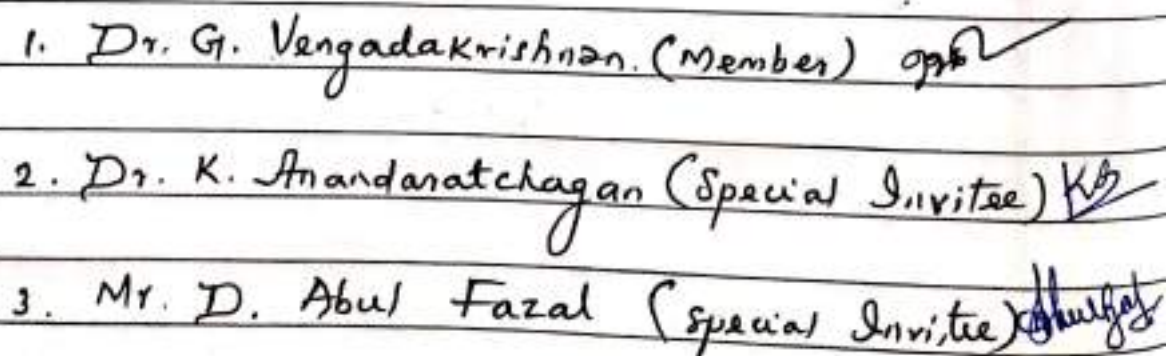 1. Dr. G. Vengadakrishnan. (Member)
2. Dr. K. Anandaratchagan (Special Invitee)
3. Mr. D. Abul Fazal (Special Invitee)